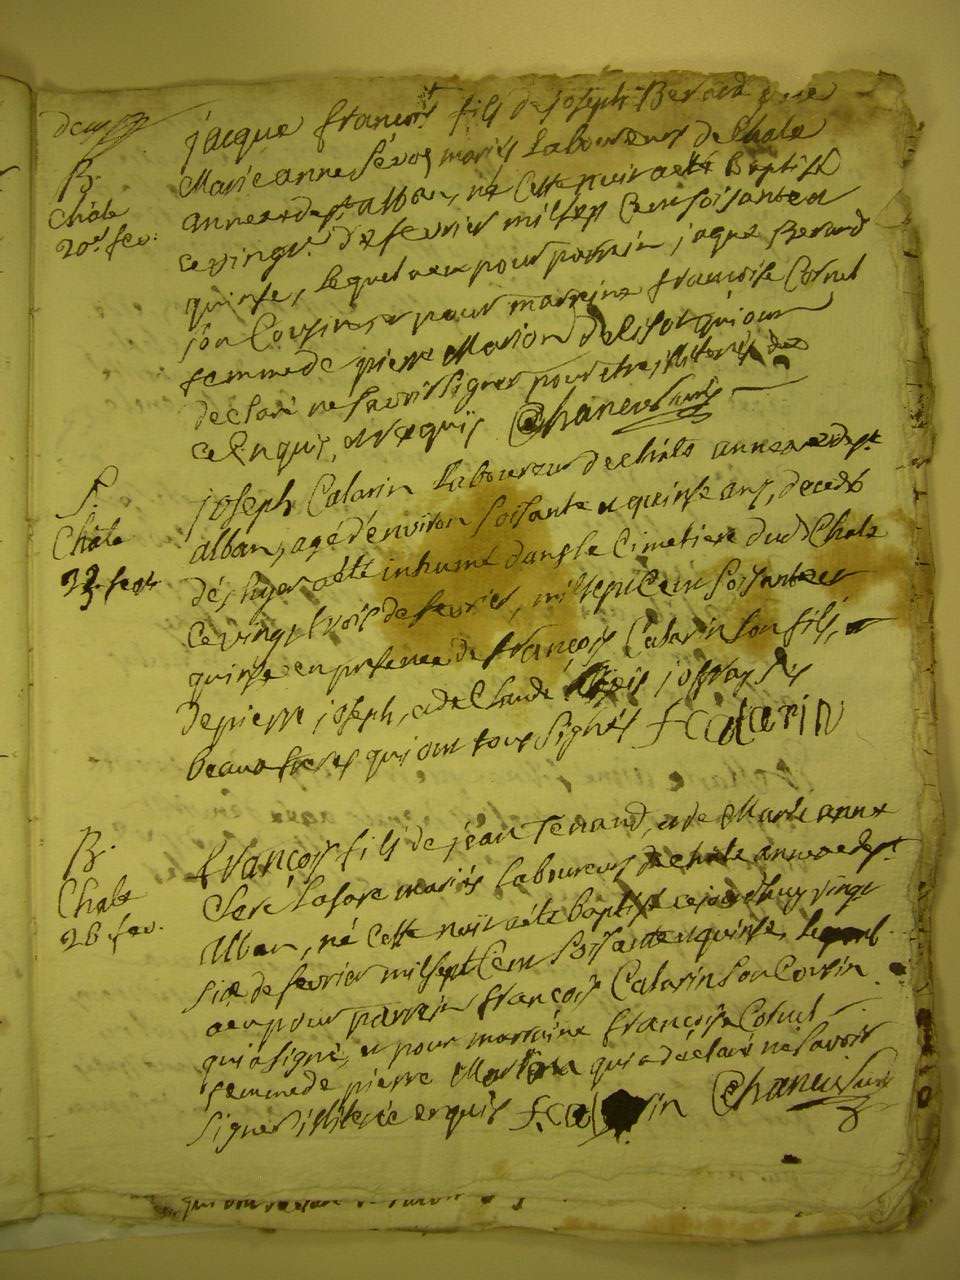 deux
B.
Chale
20e fev.
jacque françois fils de joseph Beraud & de
Marie anne mariés Laboureurs de Chale
annexe de st alban, né cette nuit a été Baptisé
ce vingt de fevrier mil sept cent soisante et
quinse, lequel a eu pour parrein jaque Beraud
son Cousin, et pour marreine françoise Cornet
femme de pierre Marion qui ont
declaré ne savoir signer pour etre illiterés de
ce Enquis, et requis Chaneu
S.
Chale
23 fevr
joseph Catarin Laboureur de chale annexe de st
alban, agé d'environ soisante et quinse ans, decedé
dés hyer a été inhumé dans le Cimetiere dud Chale
ce vingt trois de fevrier, mil sept cent soisante et
quinse en presence de françois Catarin son fils, et
de pierre joseph, et de Claude joffray ses
beaux freres qui ont tous signés f catarin
B.
Chale
26 fev.
françois fils de jean Terraud, et de Marie anne
mariés Laboureurs de chale annexe de st
Alban, né cette nuit a été baptisé ce jourd'huy vingt
six de fevrier mil sept Cent soisante et quinse, lequel
a eu pour parrein françois Catarin son Cousin
qui a signé, et pour marreine françoise Cornet
femme de pierre qui a déclaré ne savoir
signer illiterée et quis f. catarin Chaneu